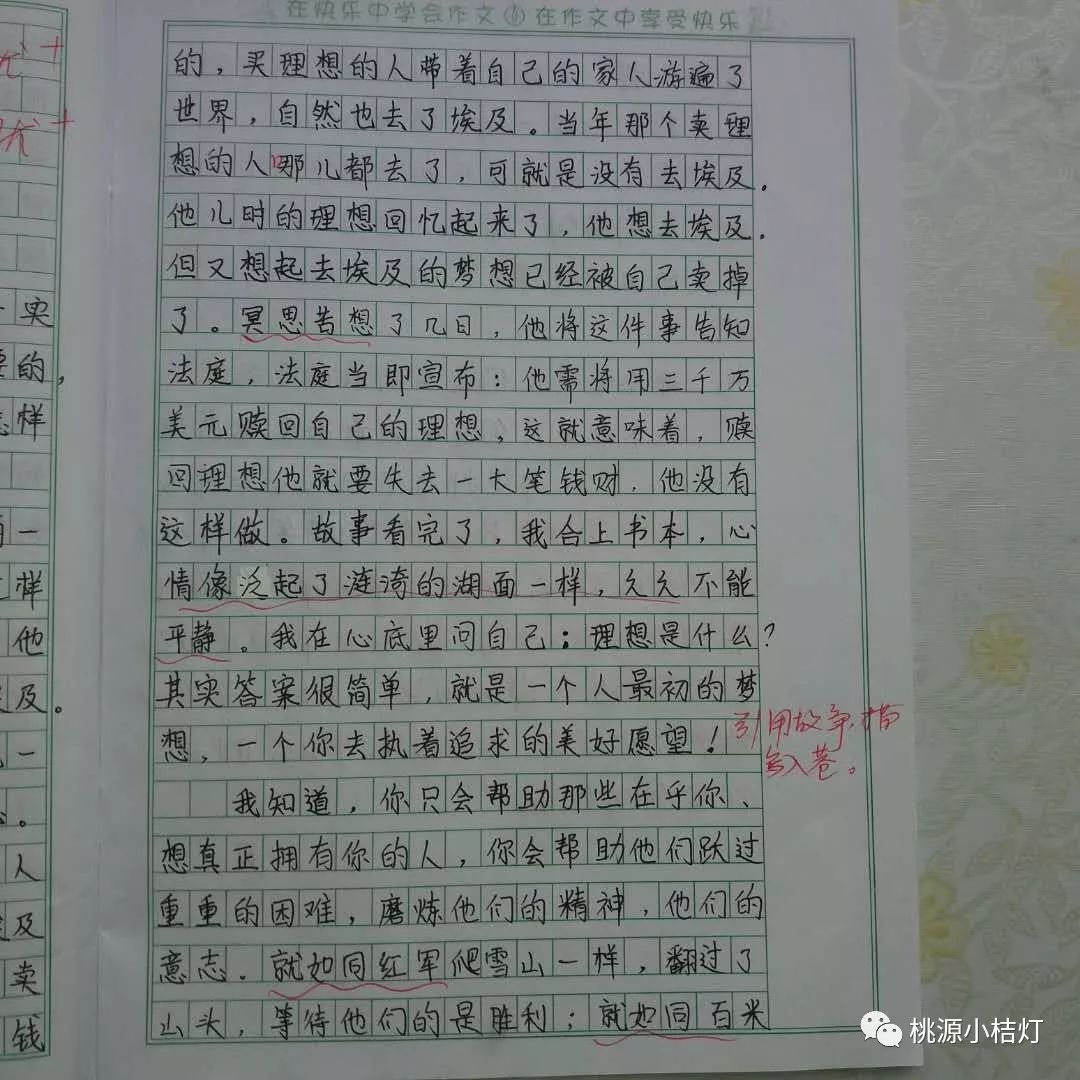 在快乐中学会作文 在作文中享受快乐
的，买理想的人带着自己的家人游遍了
世界，自然也去了埃及。当年那个卖理
想的人哪儿都去了，可就是没有去埃及。
他儿时的理想回忆起来了，他想去埃及。
但又想起去埃及的梦想已经被自己卖掉
了。冥思苦想了几日，他将这件事告知
法庭，法庭当即宣布：他需将用三千万
美元赎回自己的理想，这就意味着，赎
回理想他就要失去一大笔钱财，他没有
这样做。故事看完了，我合上书本，心
情像泛起了涟漪的湖面一样，久久不能
平静。我在心底里问自己：理想是什么？
其实答案很简单，就是一个人最初的梦
想，一个你去执着追求的美好愿望！
引用故事，描
写入卷。
我知道，你只会帮助那些在乎你、
想真正拥有你的人，你会帮助他们跃过
重重的困难，磨炼他们的精神，他们的
意志。就如同红军爬雪山一样，翻过了
山头，等待他们的是胜利；就如同百米
实
的，
样
一
样
他
及。
一
人
及
卖
钱
桃源小桔灯